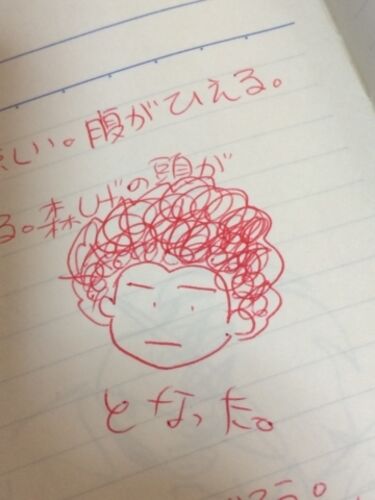 しい。腹がひえる。
る。森しげの頭が
となった。